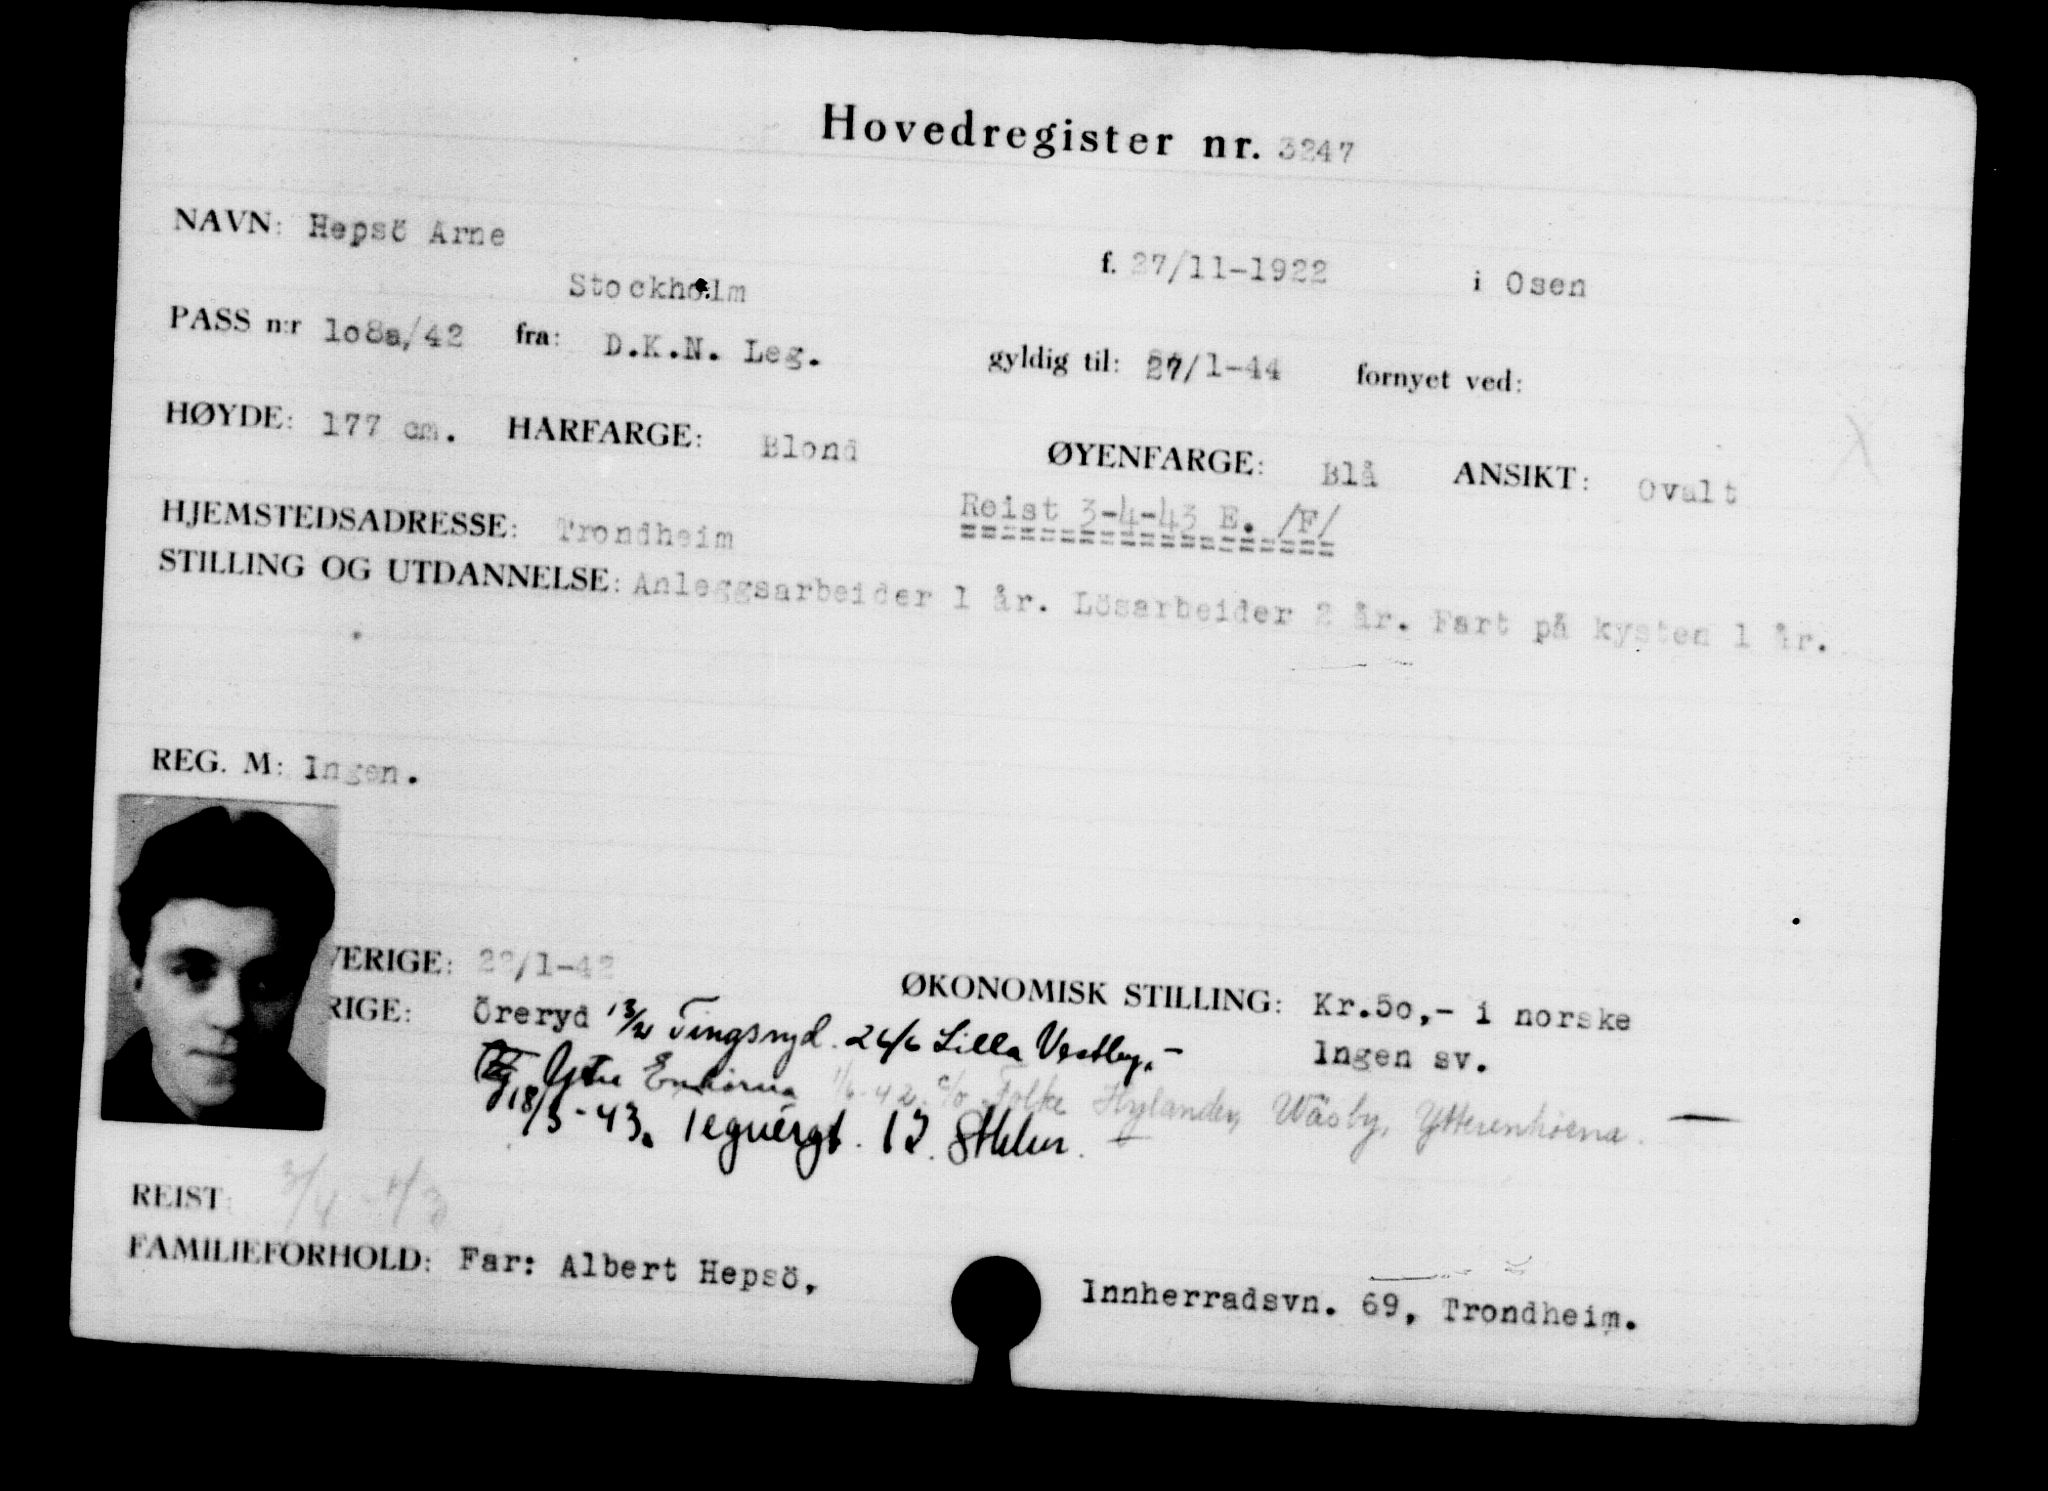 Hovedregister nr. 3247
NAVN: Hepsö Arne f. 27/11-1922 i Osen
Stockholm
PASS n:r 108a/42 fra: D.K.N. Leg. gyldig til: 27/1-44 fornyet ved:
HØYDE: 177 cm. HARFARGE: Blond ØYENFARGE: Blå ANSIKT: Ovalt
Reist 3-4-43 E. /F/
HJEMSTEDSADRESSE: Trondheim
STILLING OG UTDANNELSE: Anleggsarbeider 1 år. Lösarbeider 2 år. Fart på kysten 1 år.
REG. M: Ingen.
VERIGE: 22/1-42
ØKONOMISK STILLING: Kr.50,- i norske
RIGE: Öreryd 13/2 Tingsryd. 24/6 Lilla Vestby.-
Ingen sv.
Ytre Enhörna 1/6-42 c/o Folke Hylander, Wäsby, Ytterenhörna.
18/3-43. Tegnérgt. 13. Sthlm.
REIST: 3/4-43
FAMILIEFORHOLD: Far: Albert Hepsö, Innherradsvn. 69, Trondheim.